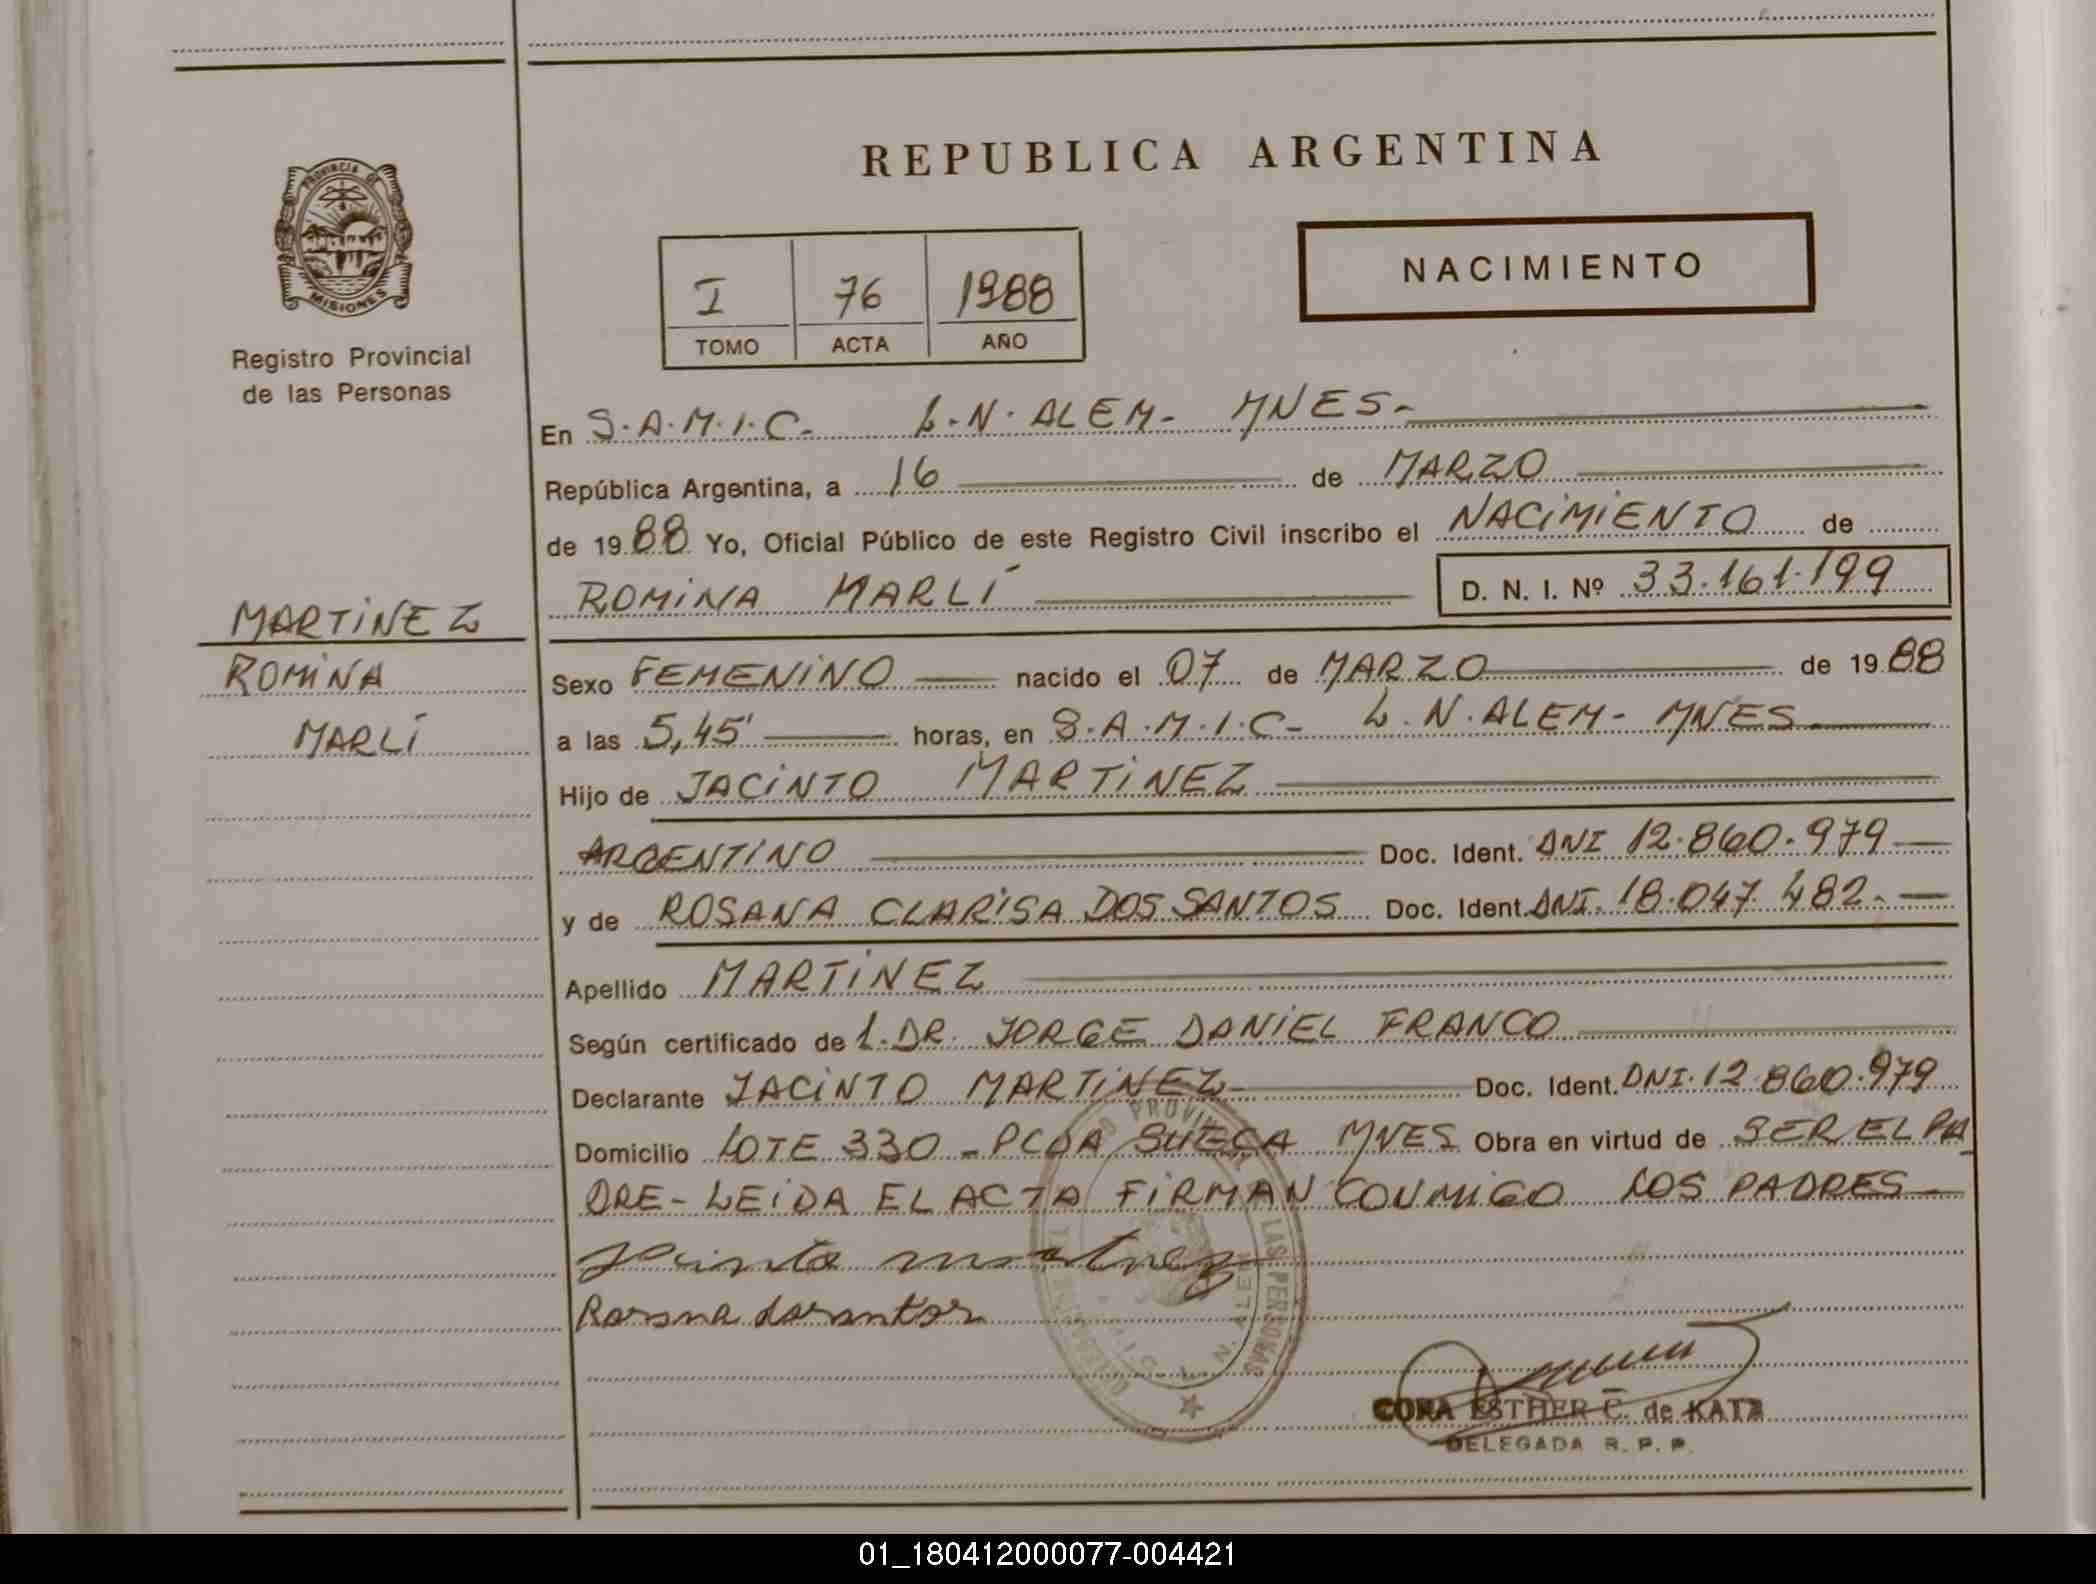 PROVINCIA DE
MISIONES
Registro Provincial
de las Personas
MARTINEZ
ROMINA
MARLÍ
REPUBLICA ARGENTINA
I 76 1988
TOMO ACTA AÑO
NACIMIENTO
En S.A.M.I.C- L.N.ALEM- MNES-
República Argentina, a 16 de MARZO
de 1988 Yo, Oficial Público de este Registro Civil inscribo el NACIMIENTO de
ROMINA MARLÍ D. N. I. Nº 33.161.199
Sexo FEMENINO nacido el 07 de MARZO de 1988
a las 5,45' horas, en S.A.M.I.C- L.N.ALEM- MNES
Hijo de JACINTO MARTINEZ
ARGENTINO Doc. Ident. DNI 12.860.979
y de ROSANA CLARISA DOS SANTOS Doc. Ident. DNI. 18.047.482.-
Apellido MARTINEZ
Según certificado de 1. DR. JORGE DANIEL FRANCO
Declarante JACINTO MARTINEZ- Doc. Ident. DNI. 12 860.979
Domicilio LOTE 330 - PCDA SUECA MNES Obra en virtud de SER EL PA
DRE- LEIDA EL ACTA FIRMAN CONMIGO LOS PADRES-
Jacinto martinez
Rosana dos santos
LAS PERSONAS
CORA ESTHER C. de KATZ
DELEGADA R. P. P.
01_180412000077-004421